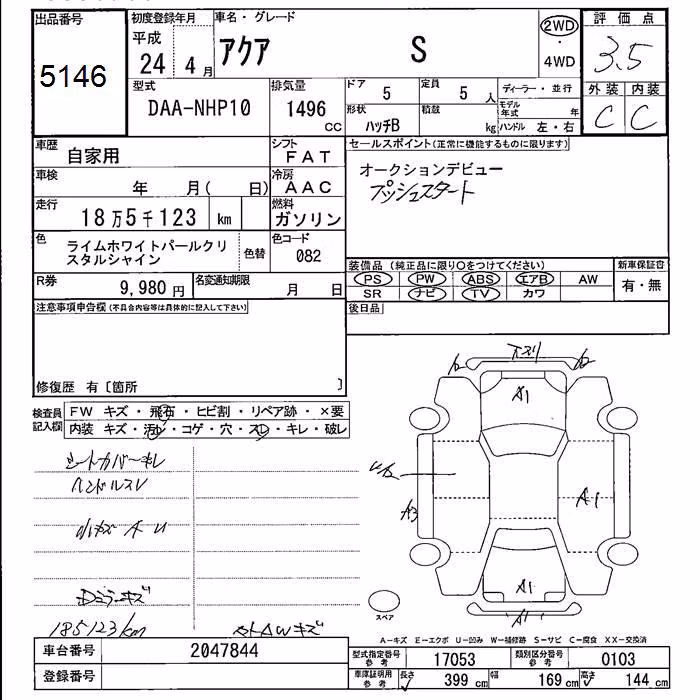 出品番号 初度登録年月 車名・グレード 評価点
5146 平成 24 4月 アクア S 2WD ・ 4WD 3.5
型式 DAA-NHP10 排気量 1496 CC
ドア 5 定員 5 人 ディーラー・並行 外装 内装
形状 ハッチB 積載 kg モデル年式 年 ハンドル 左・右 C C
車歴 自家用 シフト FAT セールスポイント(正常に機能するものに限ります)
車検 年 月( 日) 冷房 AAC オークションデビュー
走行 18万5千123 km 燃料 ガソリン プッシュスタート
色 ライムホワイトパールクリ
スタルシャイン 色替 色コード 082
装備品(純正品に限り○をつけてください) 新車保証書
R券 9,980円 名変通知期限 月 日 PS PW ABS エアB AW 有・無
SR ナビ TV カワ
注意事項申告欄(不具合内容等は具体的に記入して下さい) 後日品
修復歴 有〔箇所 〕
検査員 FW キズ・飛石・ヒビ割・リペア跡・×要
記入欄 内装 キズ・汚レ・コゲ・穴・スレ・キレ・破レ
シートカバーキレ
ハンドルスレ
小キズ A U
Dミラーキズ
185123km
A1
A1
A3
A1
A1
スペア
A−キズ E−エクボ U−凹み W−補修跡 S−サビ C−腐食 XX−交換済
車台番号 2047844 型式指定番号 参考 17053 類別区分番号 参考 0103
登録番号 車庫証明用 参考 長さ 399 cm 幅 169 cm 高さ 144 cm